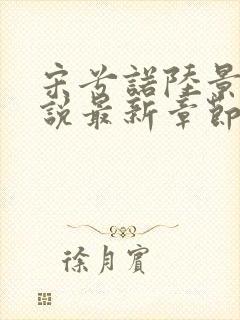 宋兮諾陸景
說最新章節
徐月賓